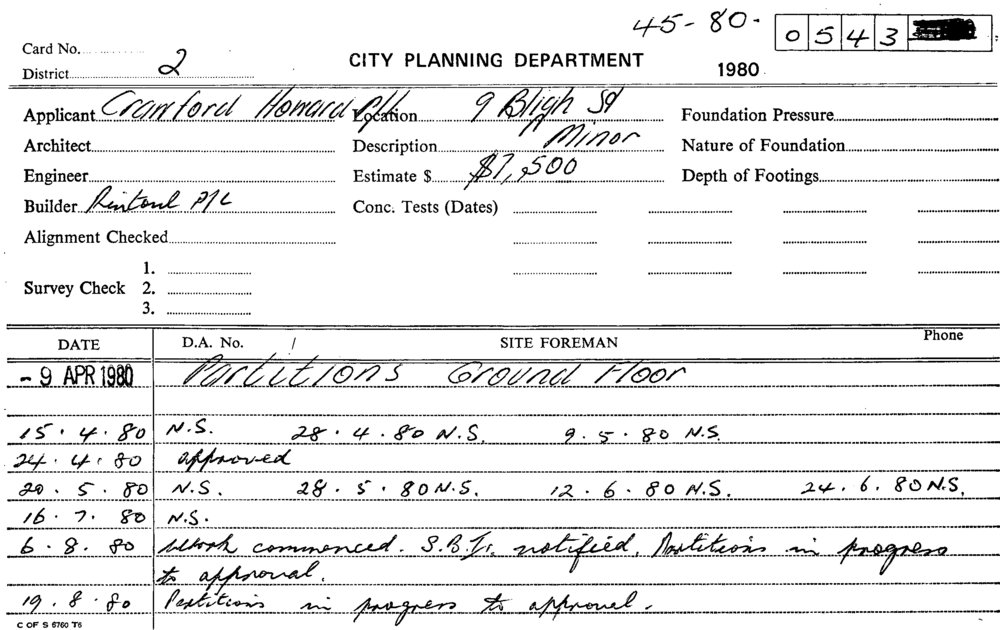 45-80- 0543
Card No.
District 2
CITY PLANNING DEPARTMENT
1980
Applicant Cranford Howard P/L Location 9 Bligh St Foundation Pressure
Architect Description Minor Nature of Foundation
Engineer Estimate $ $7,500 Depth of Footings
Builder Rintoul P/L Conc. Tests (Dates)
Alignment Checked
1.
Survey Check 2.
3.
DATE D.A. No. / SITE FOREMAN Phone
- 9 APR 1980 Partitions Ground Floor
15.4.80 N.S. 28.4.80 N.S. 9.5.80 N.S.
24.4.80 approved
20.5.80 N.S. 28.5.80 N.S. 12.6.80 N.S. 24.6.80 N.S.
16.7.80 N.S.
6.8.80 Work commenced. notified. Partitions in progress
to approval.
19.8.80 Partitions in progress to approval.
C OF S 6760 T6